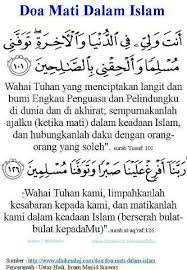 Doa Mati Dalam Islam
أَنتَ وَلِيِّي فِي الدُّنْيَا وَالْآخِرَةِ تَوَفَّنِي
مُسْلِمًا وَأَلْحِقْنِي بِالصَّالِحِينَ ١٠١
Wahai Tuhan yang menciptakan langit dan
bumi Engkau Penguasa dan Pelindungku
di dunia dan di akhirat; sempurnakanlah
ajalku (ketika mati) dalam keadaan Islam,
dan hubungkanlah daku dengan orang-
orang yang soleh". surah Yusuf: 101
رَبَّنَا أَفْرِغْ عَلَيْنَا صَبْرًا وَتَوَفَّنَا مُسْلِمِينَ ١٢٦
"Wahai Tuhan kami, limpahkanlah
kesabaran kepada kami, dan matikanlah
kami dalam keadaan Islam (berserah bulat-
bulat kepadaMu)". surah al-aq'raf:126
Sumber :
Penceramah : Ustaz Hadi, Imam Masjid